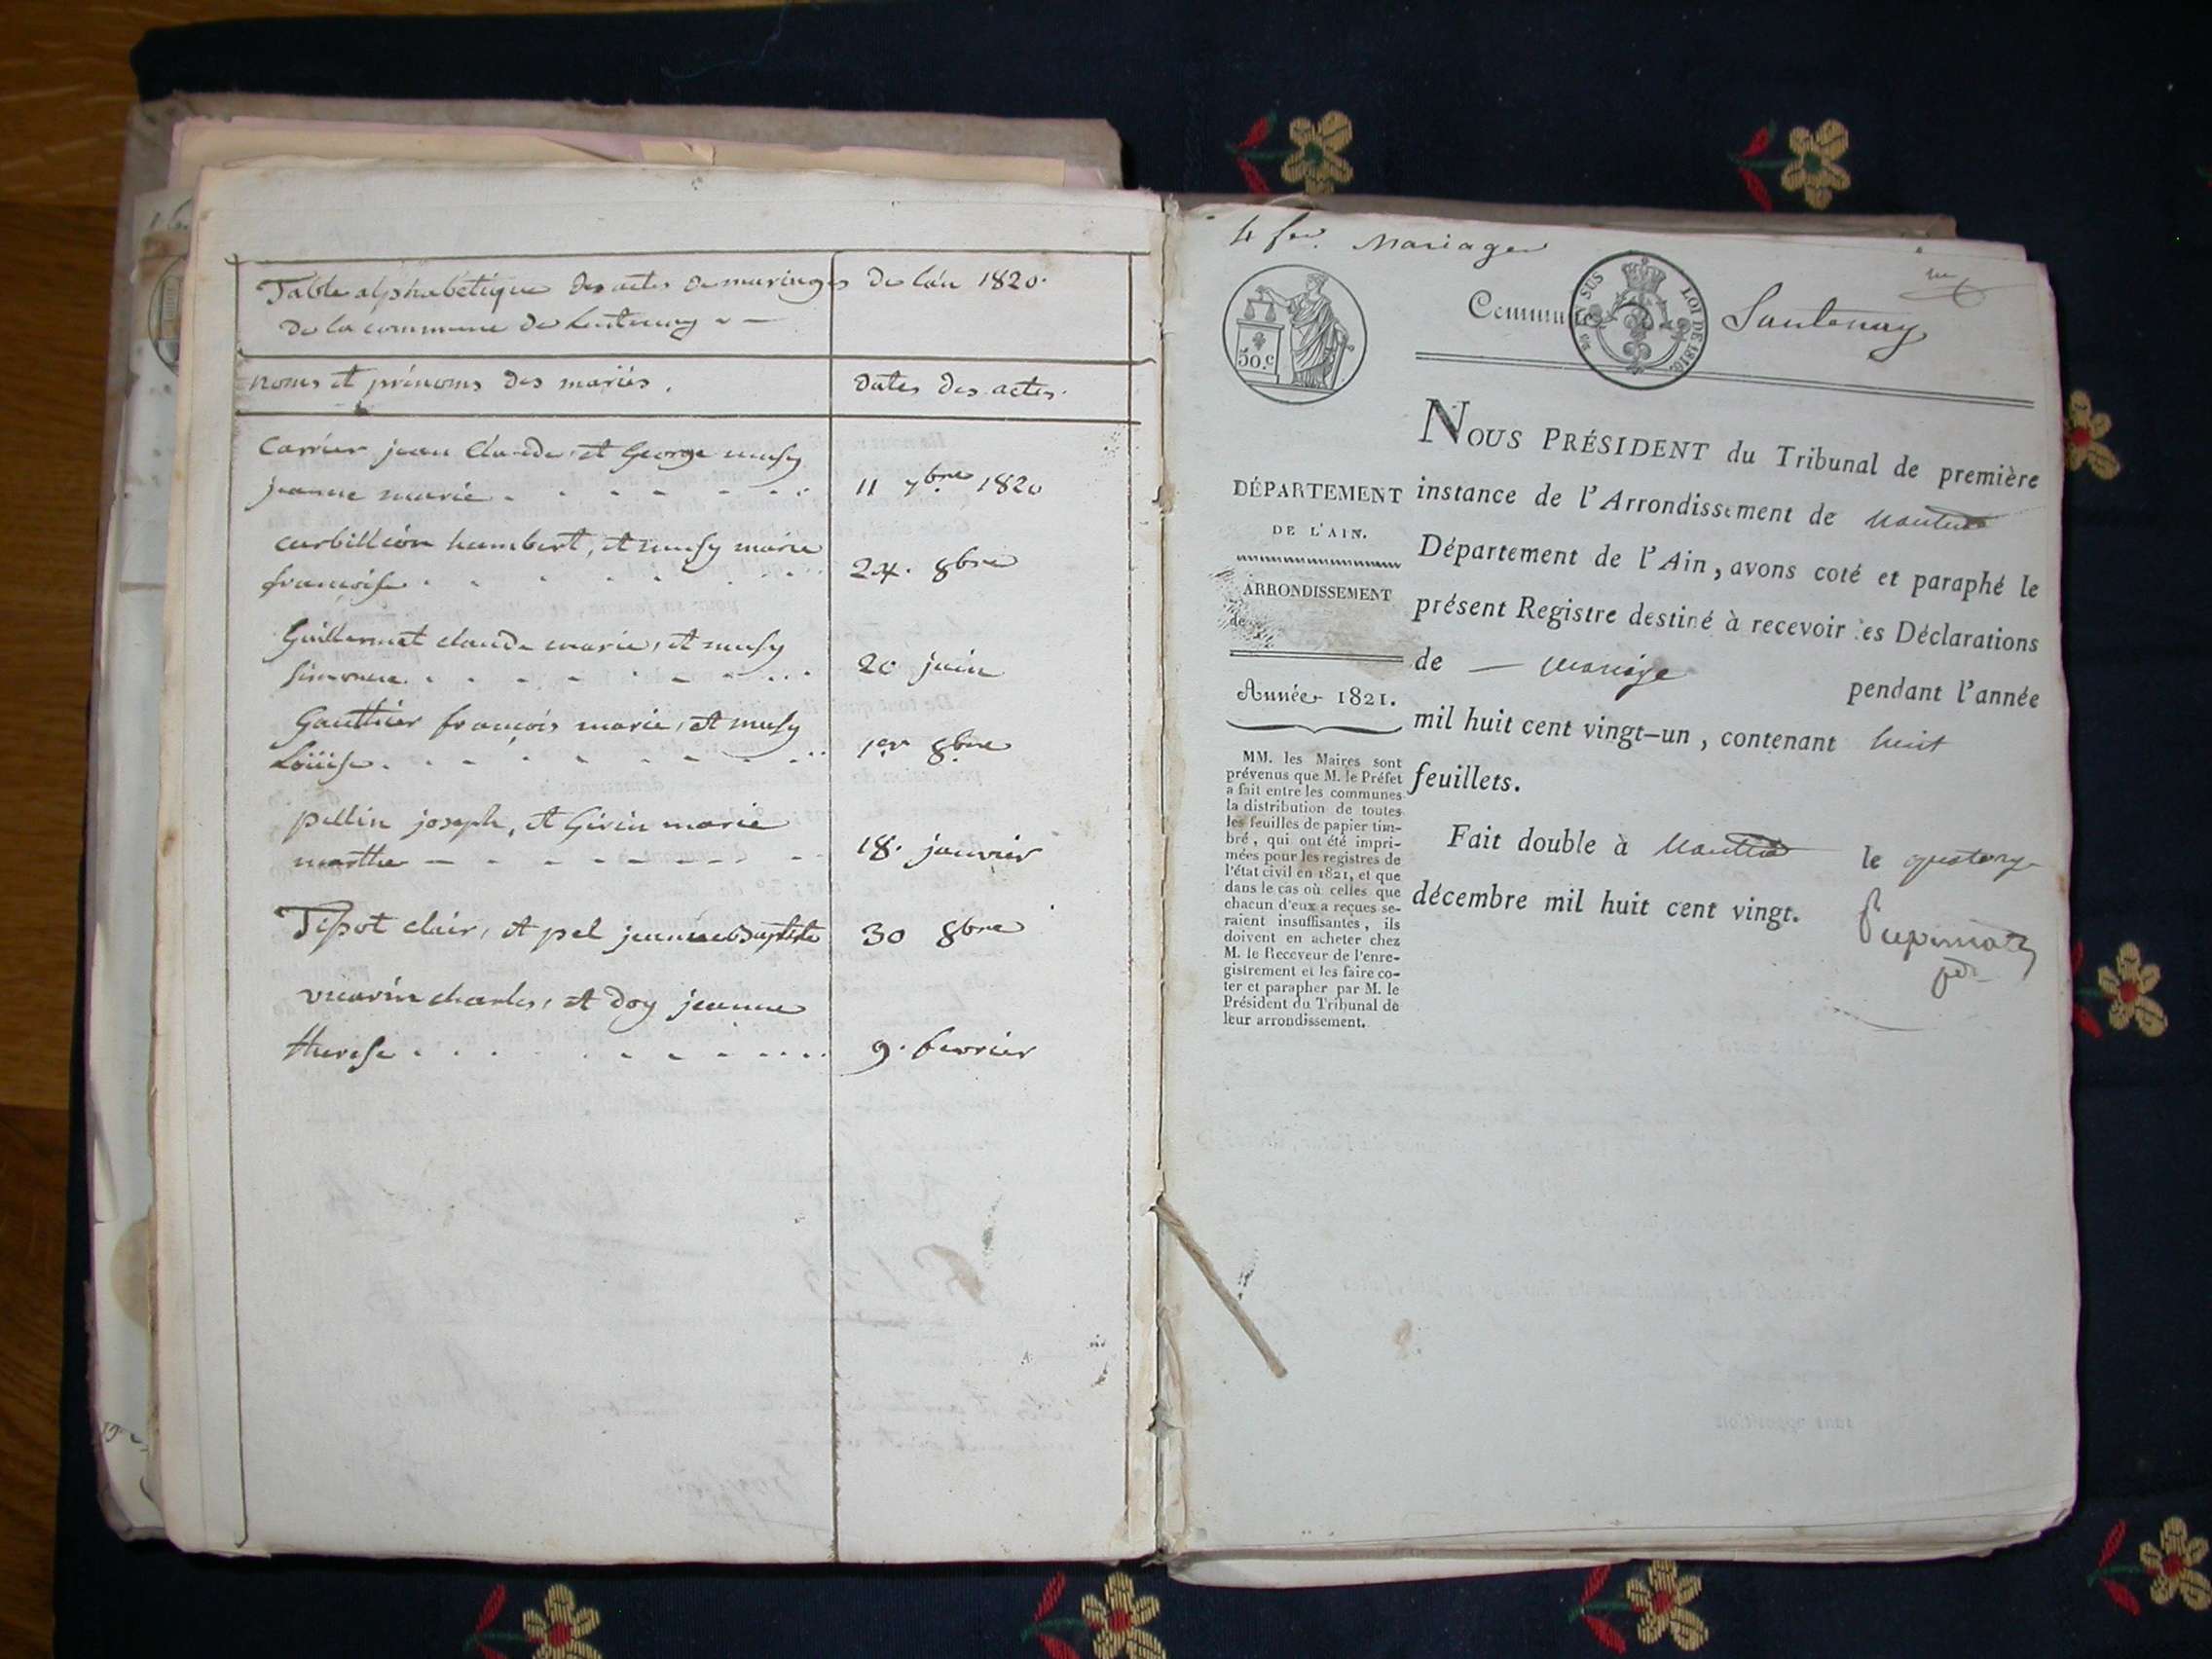 Table alphabétique des actes de mariages de l'an 1820.
de la commune de Lentenay
noms et prénoms des mariés.
dates des actes.
Carrier jean Claude, et George musy
jeanne marie
11 7bre 1820
curbillion humbert, et musy marie
françoise
24. 8bre
Guillermet claude marie, et musy
simonne
20 juin
Gauthier françois marie, et musy
Loüise
1er 8bre
pellin joseph, et Girin marie
marthe
18. janvier
Tissot clair, et pel jeanne baptiste
30 8bre
vuarin charles, et doy jeanne
therese
9. fevrier
4 feu. Mariages
Commune
Lantenay
EN SUS
LOI DE 1816.
50.c
NOUS PRÉSIDENT du Tribunal de première
instance de l'Arrondissement de Nantua
Département de l'Ain, avons coté et paraphé le
présent Registre destiné à recevoir les Déclarations
de — mariage pendant l'année
mil huit cent vingt-un, contenant huit
feuillets.
Fait double à Nantua le quatorze
décembre mil huit cent vingt.
DÉPARTEMENT
DE L'AIN.
ARRONDISSEMENT
de
Année 1821.
MM. les Maires sont
prévenus que M. le Préfet
a fait entre les communes
la distribution de toutes
les feuilles de papier tim-
bré, qui ont été impri-
mées pour les registres de
l'état civil en 1821, et que
dans le cas où celles que
chacun d'eux a reçues se-
raient insuffisantes, ils
doivent en acheter chez
M. le Receveur de l'enre-
gistrement et les faire co-
ter et parapher par M. le
Président du Tribunal de
leur arrondissement.